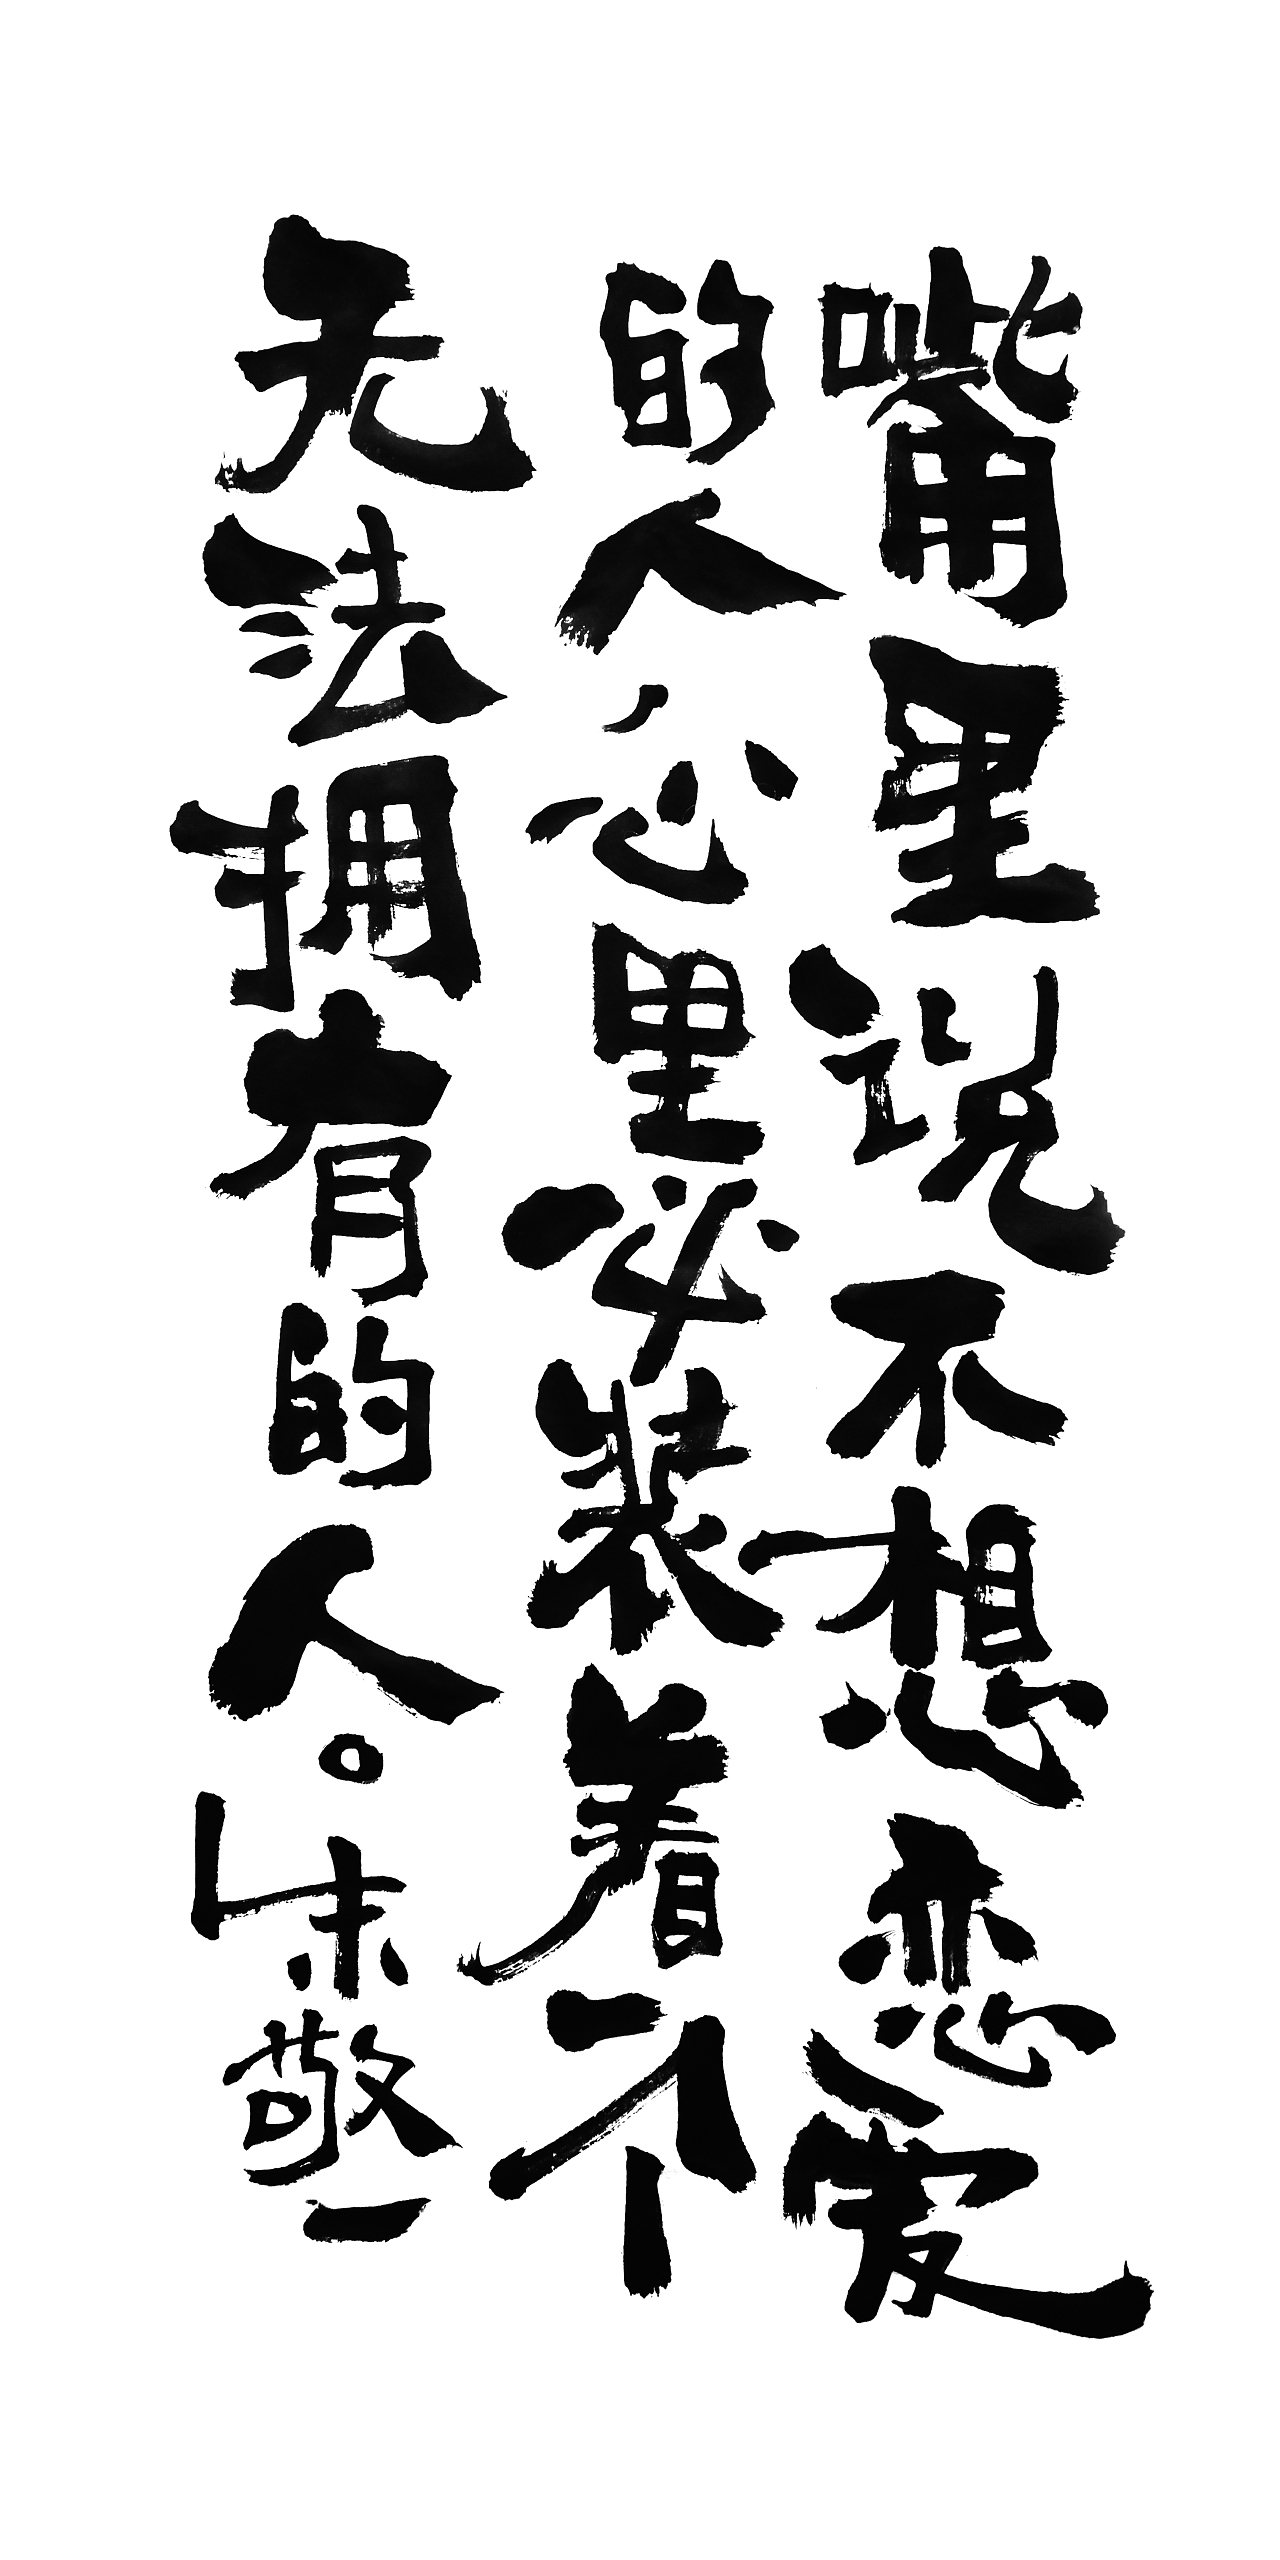 嘴里说不想恋爱
的人心里必装着个
无法拥有的人。朱敬一